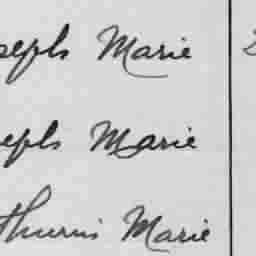 seph Marie
eph Marie
thurin Marie